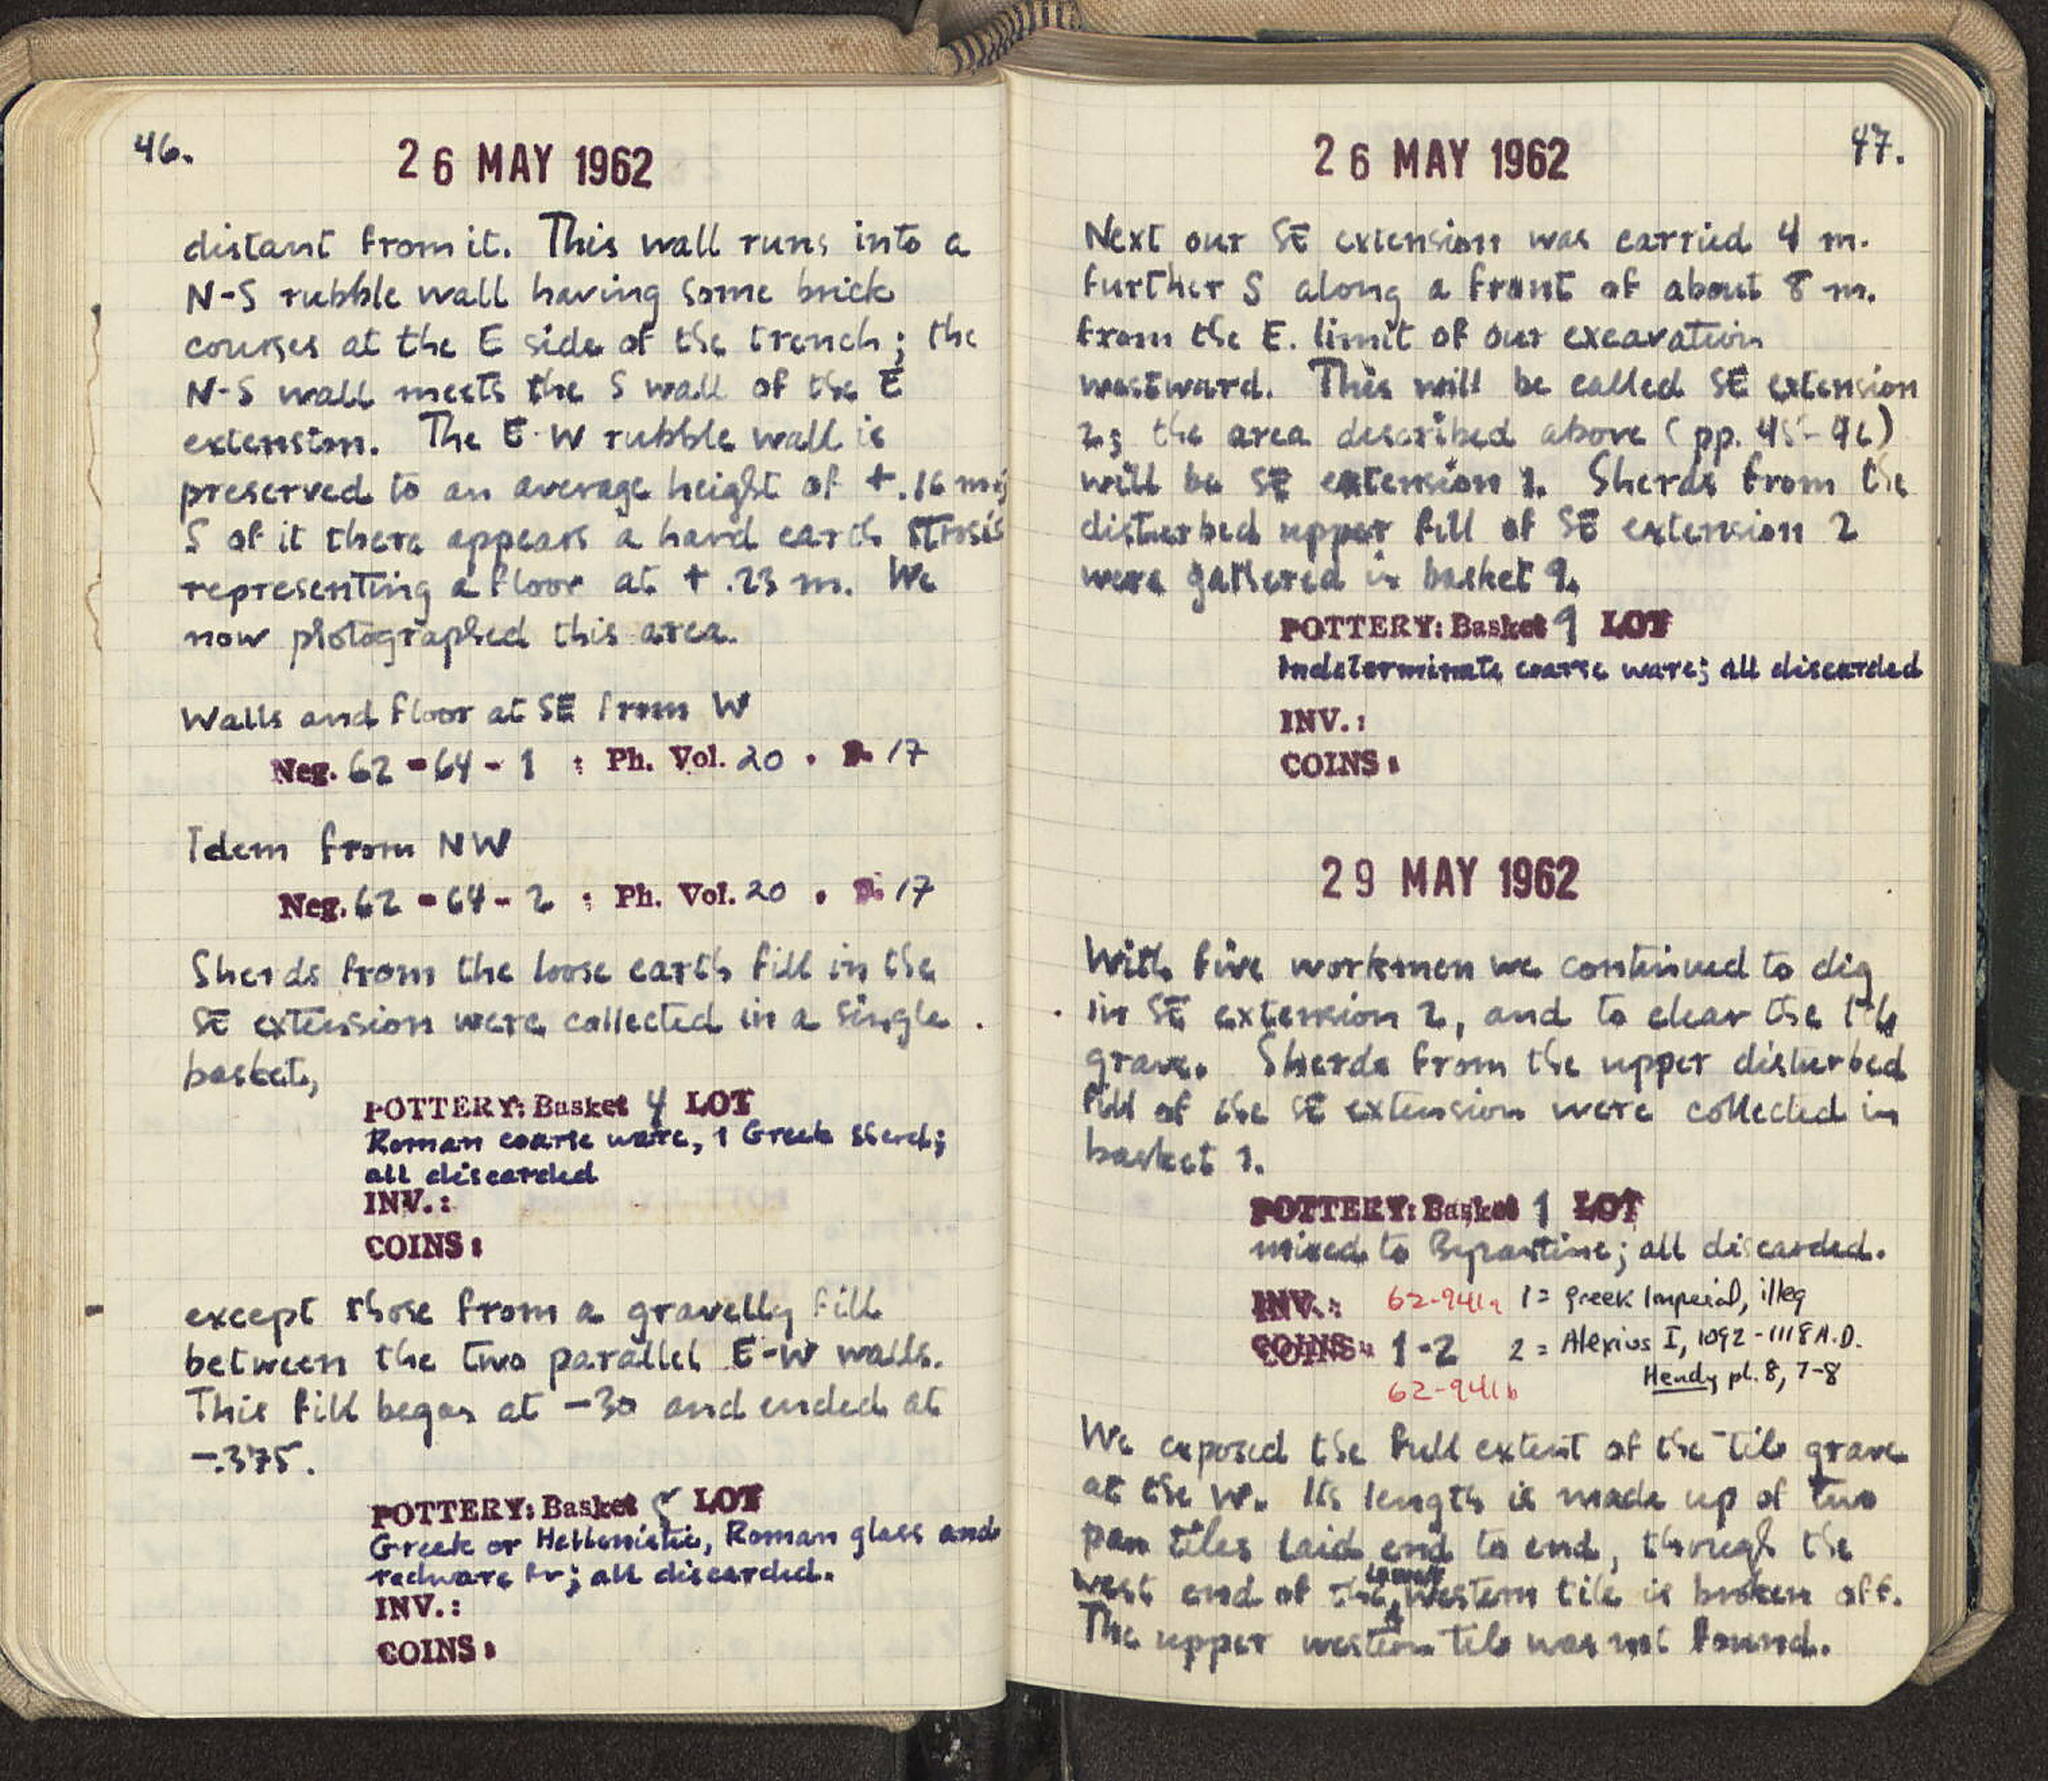 46.
26 MAY 1962
distant from it. This wall runs into a
N-S rubble wall having some brick
courses at the E side of the trench; the
N-S wall meets the S wall of the E
extension. The E-W rubble wall is
preserved to an average height of +.16 m;
S of it there appears a hard earth
representing a floor at +.23 m. We
now photographed this area.
Walls and floor at SE from W
Neg. 62-64-1 : Ph. Vol. 20 . P. 17
Idem from NW
Neg. 62-64-2 : Ph. Vol. 20 . P. 17
Sherds from the loose earth fill in the
SE extension were collected in a single
basket,
POTTERY: Basket 4 LOT
Roman coarse ware, 1 Greek sherd;
all discarded
INV.:
COINS:
except those from a gravelly fill
between the two parallel E-W walls.
This fill began at -30 and ended at
-.375.
POTTERY: Basket 5 LOT
Greek or Hellenistic, Roman glass and
redware fr; all discarded.
INV.:
COINS:
26 MAY 1962
47.
Next our SE extension was carried 4 m.
further S along a front of about 8 m.
from the E. limit of our excavation
westward. This will be called SE extension
2; the area described above (pp. 45-46)
will be SE extension 1. Sherds from the
disturbed upper fill of SE extension 2
were gathered in basket 9.
POTTERY: Basket 9 LOT
Indeterminate coarse ware; all discarded
INV.:
COINS:
29 MAY 1962
With five workmen we continued to dig
in SE extension 2, and to clear the tile
grave. Sherds from the upper disturbed
fill of the SE extension were collected in
basket 1.
POTTERY: Basket 1 LOT
mixed to Byzantine; all discarded.
INV.: 62-941a 1 = Greek Imperial, illeg
COINS: 1-2 2 = Alexius I, 1092-1118 A.D.
62-941b Hendy pl. 8, 7-8
We exposed the full extent of the tile grave
at the W. Its length is made up of two
pan tiles laid end to end, though the
west end of the lower western tile is broken off.
The upper western tile was not found.